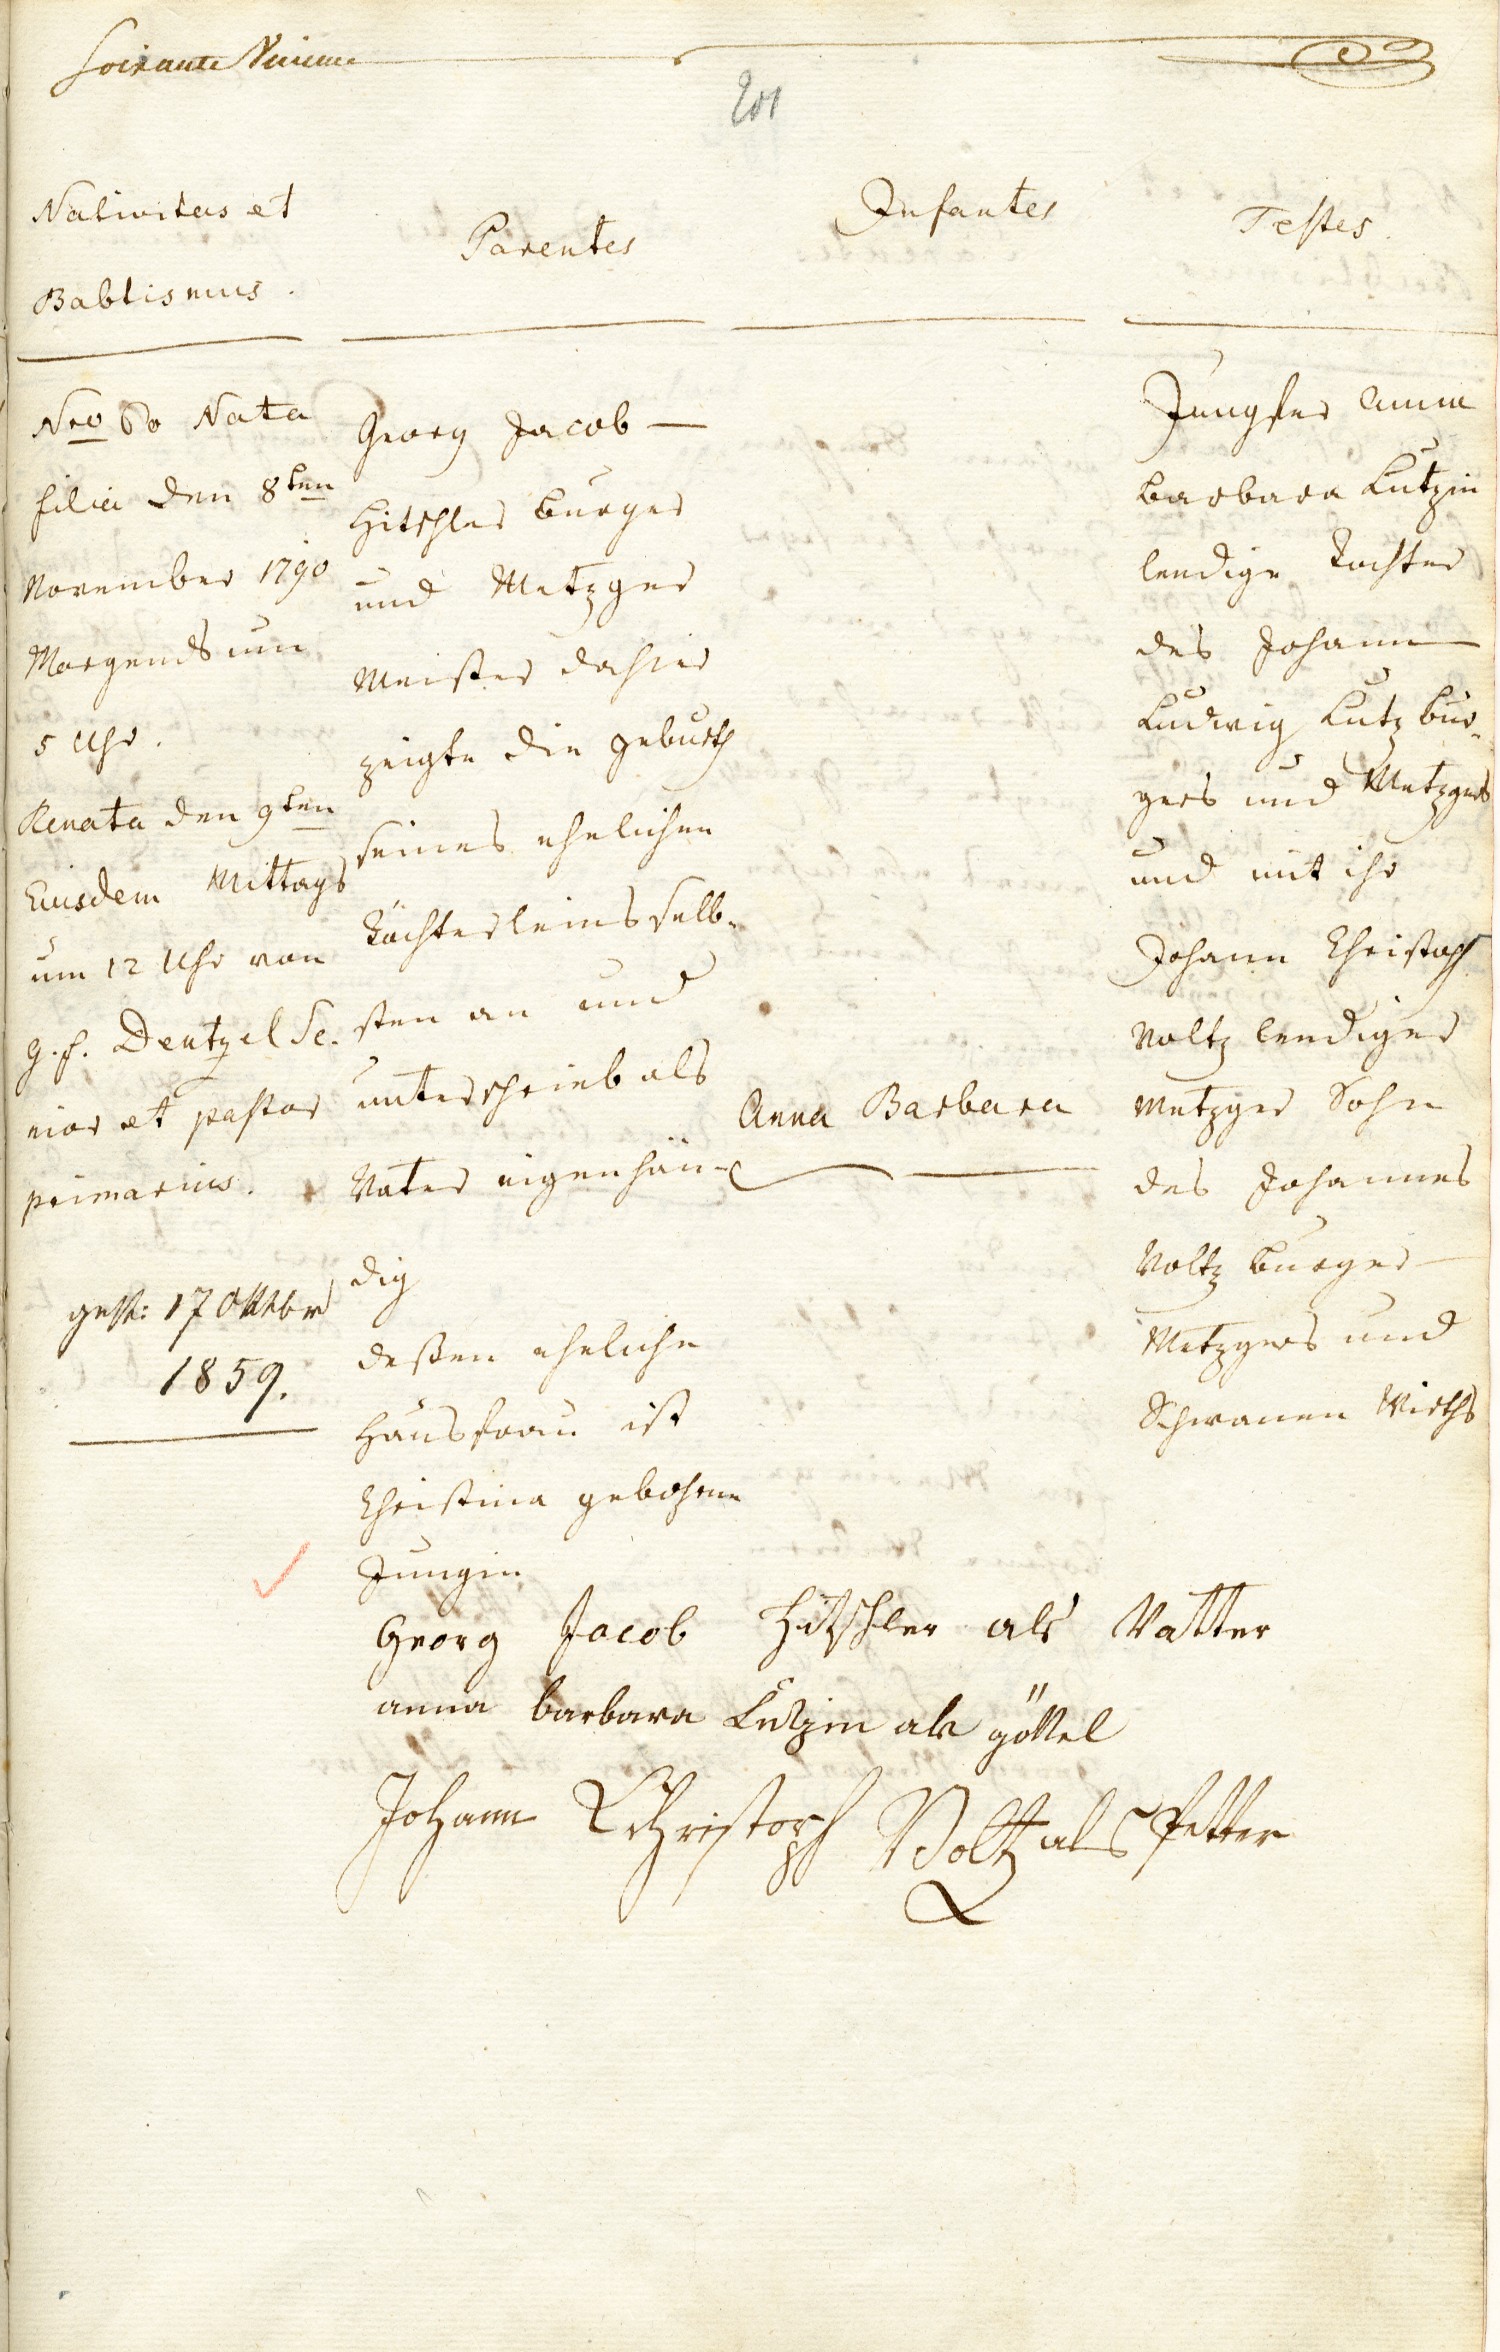 Soixante Nieme
201
Nativitas et
Babtismus.
Parentes
Infantes
Testes.
Nro 60 Nata
filia den 8ten
November 1790
Morgends um
5 Uhr.
Renata den 9ten
Eiusdem Mittags
um 12 Uhr von
G. F. Dentzel Se-
nior et pastor
primarius.
gest: 17 Oktbr
1859.
Georg Jacob —
Hitschler burger
und Metzger
Meister dahier
zeigte die geburth
seines ehelichen
Töchterleins selb-
sten an und
unterschrieb als
Vater eigenhän-
dig
deßen eheliche
Hausfrau ist
Christina gebohrne
Jungin
Anna Barbara
Jungfer Anna
Barbara Lutzin
lendige Tochter
des Johann
Ludwig Lutz bur-
gers und Metzgers
und mit ihr
Johann Christoph
Voltz lendiger
Metzger Sohn
des Johannes
Voltz burger
Metzgers und
Schwanen Wirths
Georg Jacob Hitschler als Vatter
anna barbara Lutzin als göttel
Johann Christoph Voltz als Petter